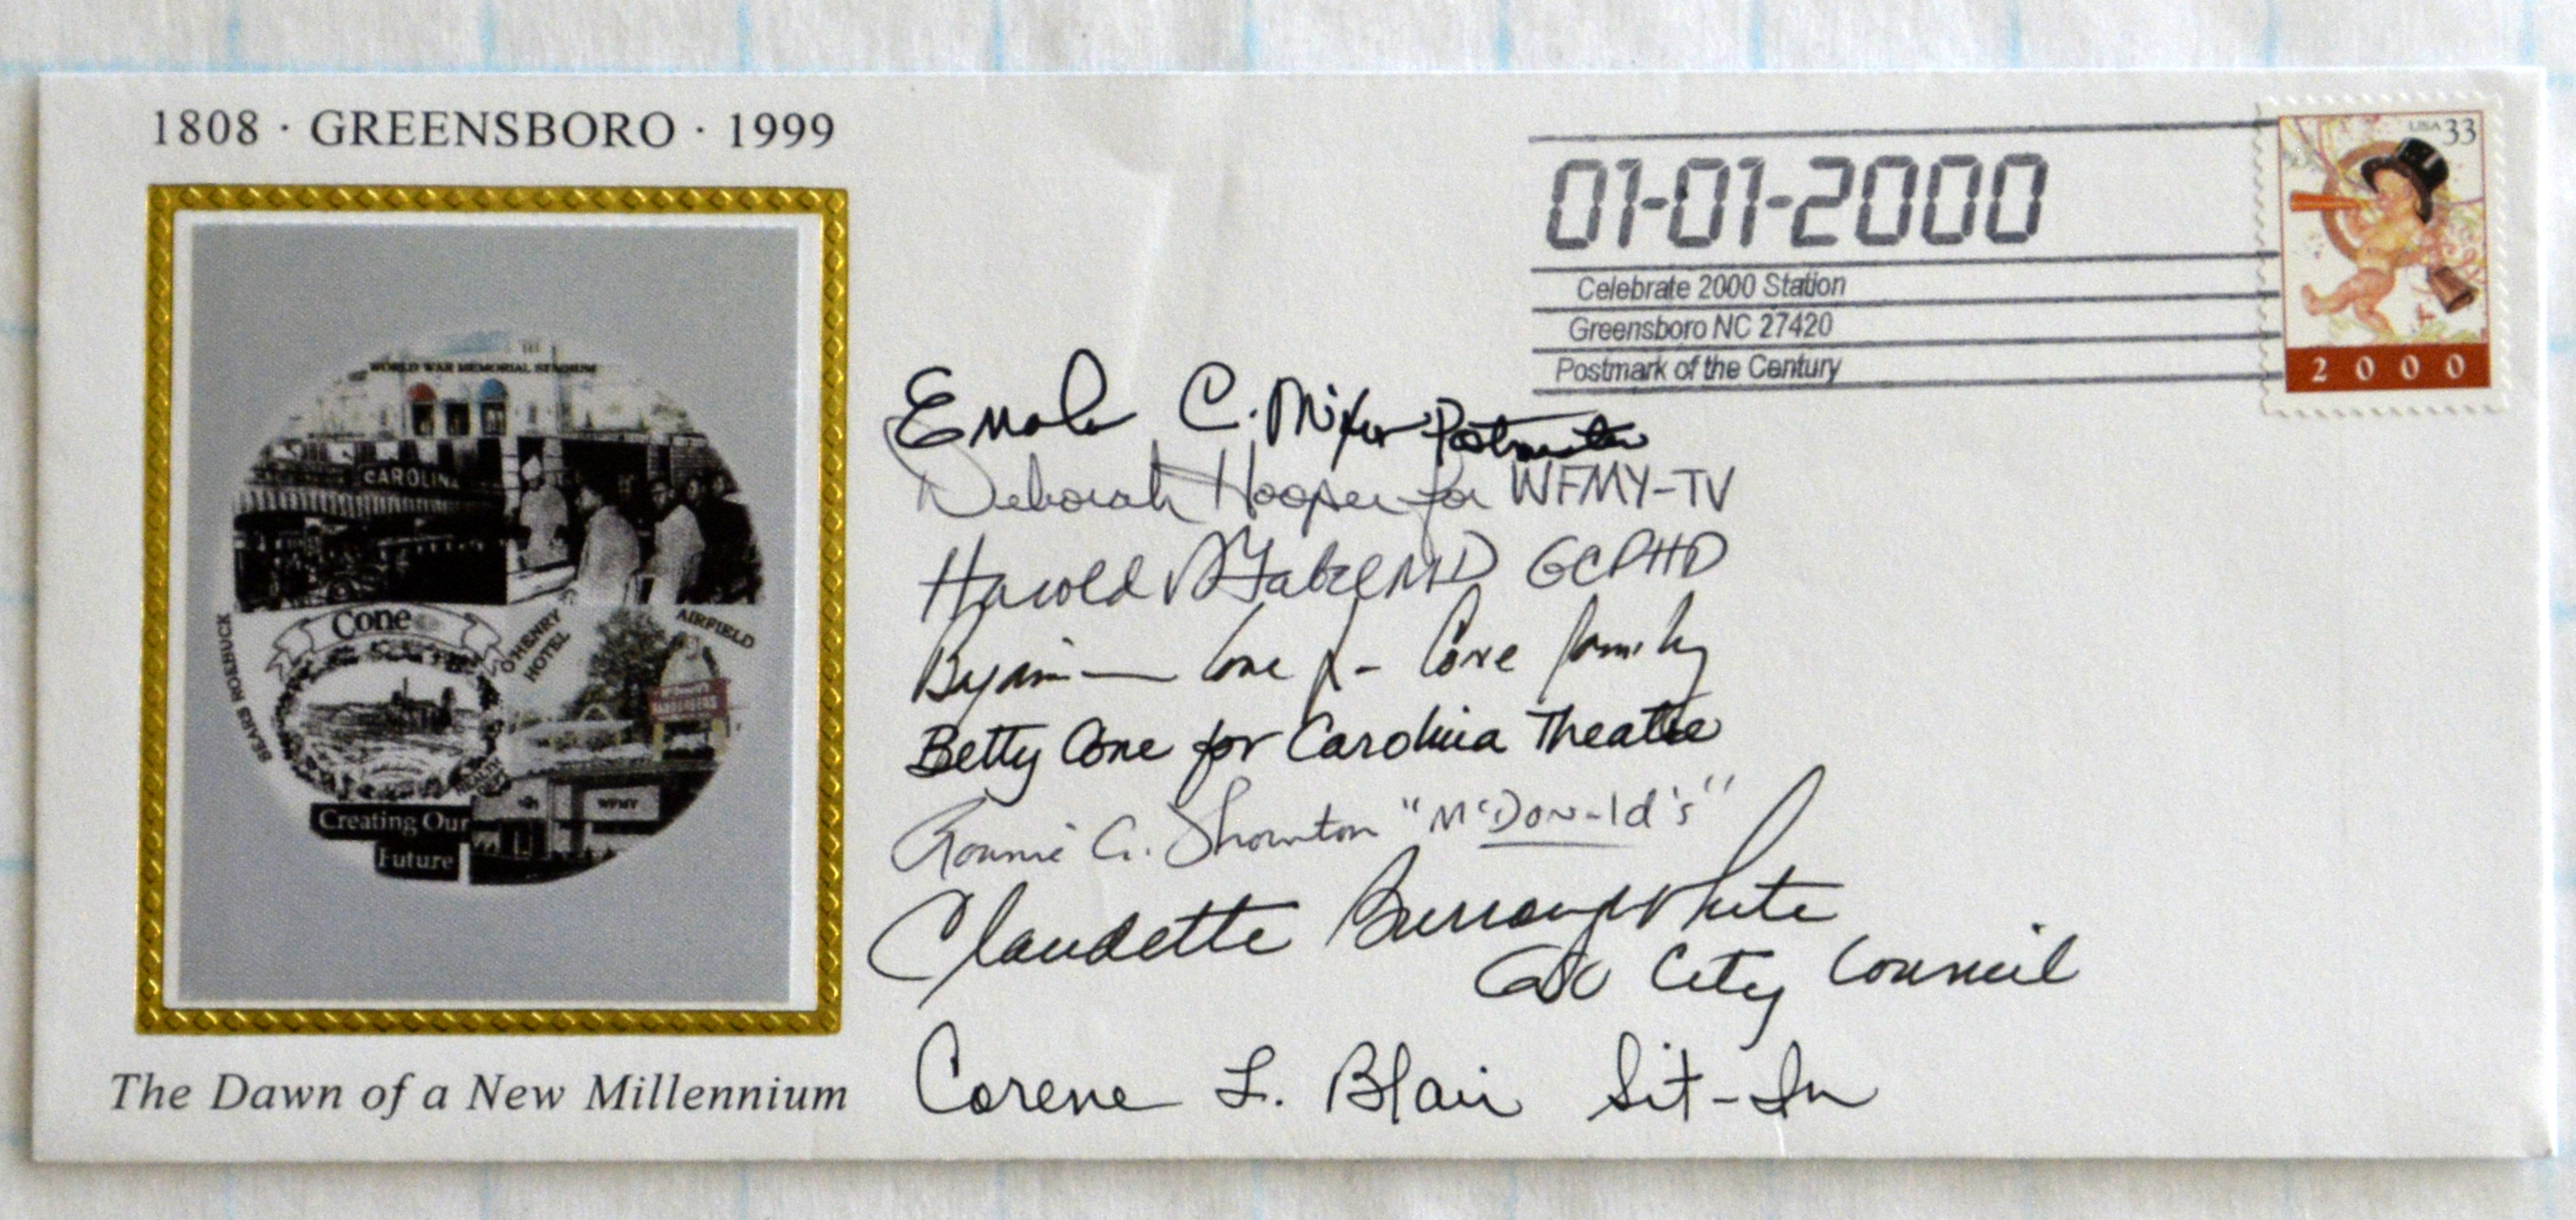 1808 · GREENSBORO · 1999
WORLD WAR MEMORIAL STADIUM
CAROLINA
Cone
SEARS ROEBUCK
O'HENRY
HOTEL
AIRFIELD
WFMY
Creating Our
Future
The Dawn of a New Millennium
01-01-2000
Celebrate 2000 Station
Greensboro NC 27420
Postmark of the Century
USA 33
2000
C. Postmaster
Deborah Hooper for WFMY-TV
Harold MD GCPHD
Cone Cone family
Betty Cone for Carolina Theatre
Ronnie G. Thornton "McDonald's"
Claudette Burroughs White
City Council
Corene L. Blair Sit-In